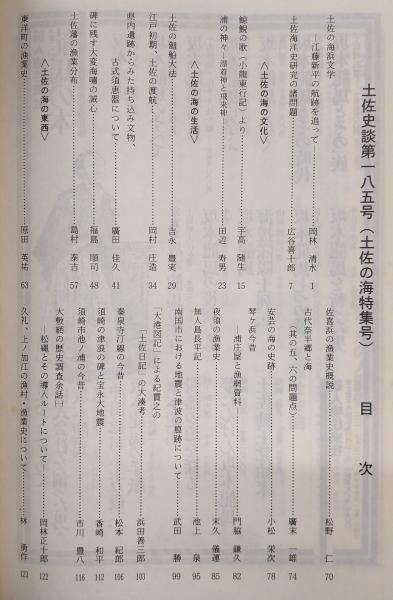 土佐史談第一八五号（土佐の海特集号）　目次
土佐の海浜文学
―江藤新平の航跡を追って―……岡林 清水 1
土佐海洋史研究の諸問題……広谷喜十郎 7
〈土佐の海の文化〉
鯨鯢の歌（小龍東行記）より……宇高 随生 15
浦の神々―漂着神と飛来神―……田辺 寿男 23
〈土佐の海の生活〉
土佐の劒船大法……吉永 豊実 29
江戸初期、土佐の渡航……岡村 庄造 34
県内遺跡からみた持ち込み文物、
古式須恵器について……廣田 佳久 41
碑に残す大変海嘯の誠心……福島 順司 48
土佐藩の漁業分布……島村 泰吉 57
〈土佐の海の東西〉
東洋町の漁業史……原田 英祐 63
佐喜浜の漁業史概説……松野 仁 70
古代奈半郷と海
（其の五、六の問題点）……廣末 一雄 74
安芸の海の史跡……小松 栄次 78
琴ヶ浜今昔
―浦庄屋と漁網資料……門脇 鎌久 82
夜須の漁業史……末久 儀運 85
無人島長平記……池上 泉 95
南国市における地震と津波の痕跡について……武田 勝 99
「大湊図記」による紀貫之の
「土佐日記」の大湊考……浜田善三郎 103
秦泉寺汀線の今昔……松本 紀郎 106
須崎の津浪の碑と宝永大地震……香崎 和平 112
須崎市池ノ浦の今昔……市川 豊八 116
大敷網の歴史調査余話(一)
―松縄とその導入ルートについて……岡林正十郎 122
久礼、上ノ加江の漁村・漁業史について……林 勇作 123